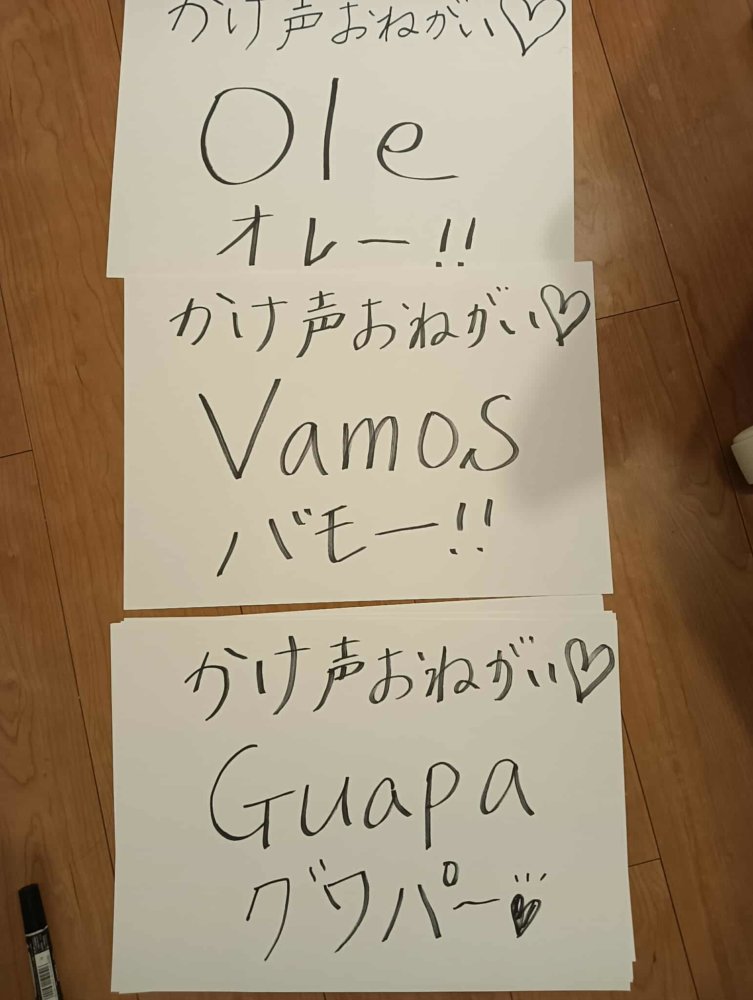 かけ声おねがい♡
Ole
オレー!!
かけ声おねがい♡
Vamos
バモー!!
かけ声おねがい♡
Guapa
グワパー♥